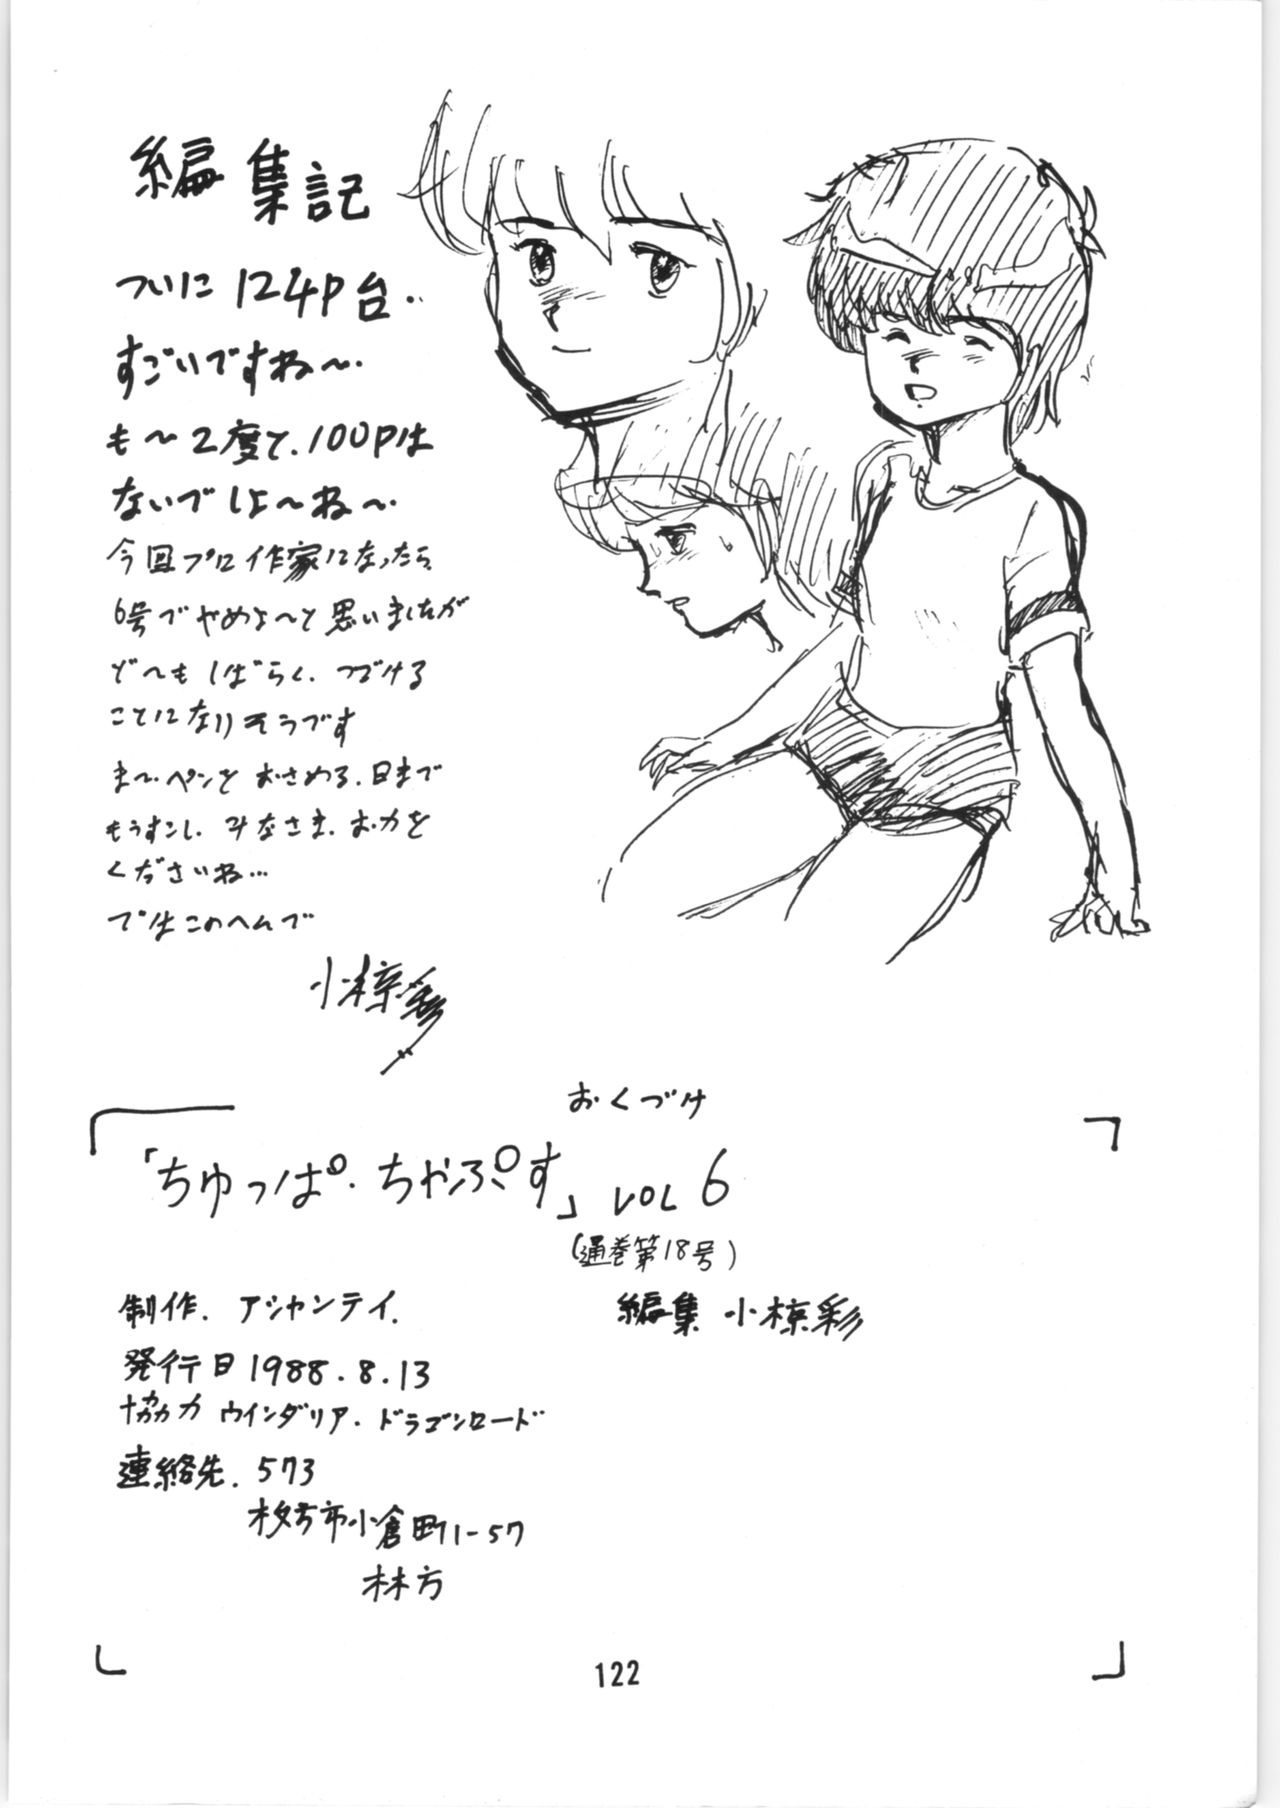 編集記
ついに124P台..
すごいですね〜.
も〜2度と.100Pは
ないでしょ〜ね〜.
今回プロ作家になったら
6号でやめよ〜と思いましたが
ど〜もしばらく.つづける
ことになりそうです
ま〜.ペンをおさめる.日まで
もうすこし.みなさま.お力を
くださいね…
ではこのへんで
小椋彩
おくづけ
「ちゅっぱ.ちゃぷす」VOL 6
(通巻第18号)
制作.アシャンティ.
編集 小椋彩
発行日1988.8.13
協力 ウインダリア.ドラゴンロード
連絡先.573
枚方市小倉町11-57
林方
122